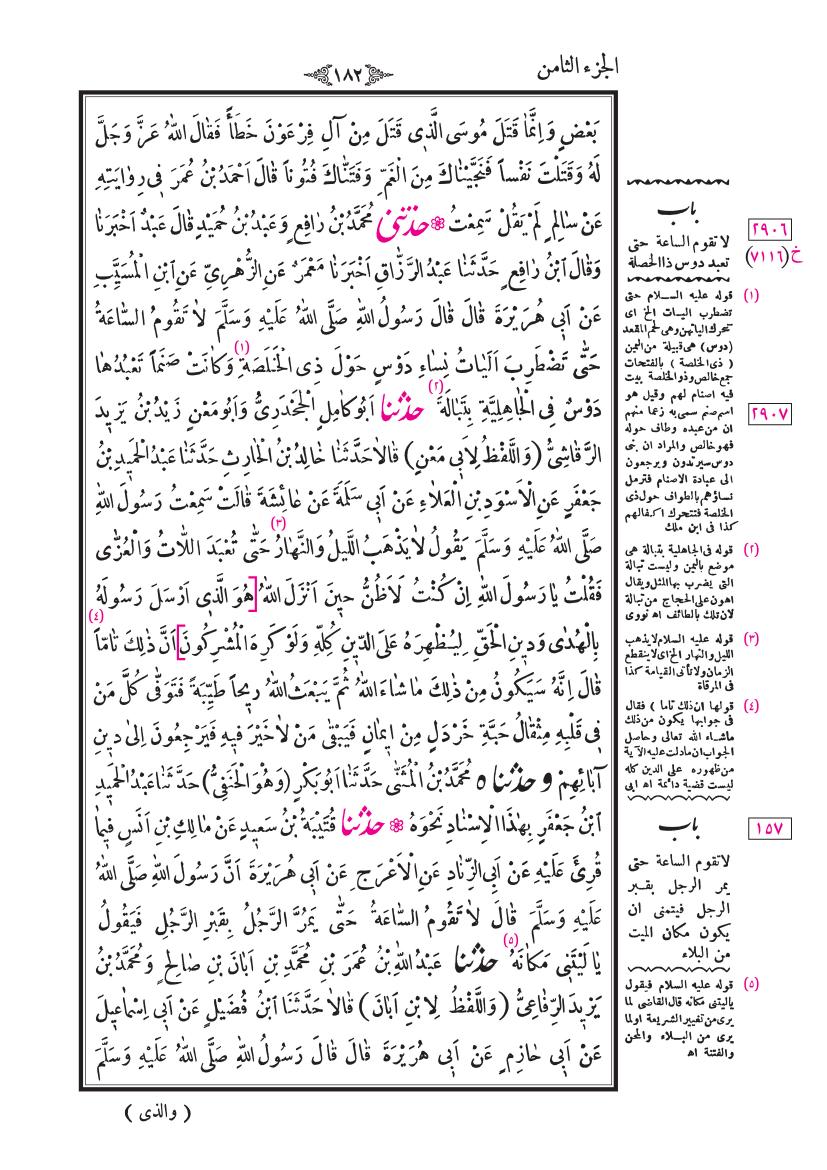 الجزء الثامن
١٨٢
بَعْضٍ وَاِنَّمَا قَتَلَ مُوسَى الَّذِى قَتَلَ مِنْ آلِ فِرْعَوْنَ خَطَأً فَقَالَ اللهُ عَزَّ وَجَلَّ
لَهُ وَقَتَلْتَ نَفْساً فَنَجَّيْنَاكَ مِنَ الْغَمِّ وَفَتَنَّاكَ فُتُوناً قَالَ اَحْمَدُ بْنُ عُمَرَ فِى رِوَايَتِهِ
عَنْ سَالِمٍ لَمْ يَقُلْ سَمِعْتُ ❁ حَدَّثَنِى مُحَمَّدُ بْنُ رَافِعٍ وَعَبْدُ بْنُ حُمَيْدٍ قَالَ عَبْدٌ اَخْبَرَنَا
وَقَالَ ابْنُ رَافِعٍ حَدَّثَنَا عَبْدُ الرَّزَّاقِ اَخْبَرَنَا مَعْمَرٌ عَنِ الزُّهْرِىِّ عَنِ ابْنِ الْمُسَيَّبِ
عَنْ اَبِى هُرَيْرَةَ قَالَ قَالَ رَسُولُ اللهِ صَلَّى اللهُ عَلَيْهِ وَسَلَّمَ لَا تَقُومُ السَّاعَةُ
حَتَّى تَضْطَرِبَ اَلَيَاتُ نِسَاءِ دَوْسٍ حَوْلَ ذِى الْخَلَصَةِ (١) وَكَانَتْ صَنَماً تَعْبُدُهَا
دَوْسٌ فِى الْجَاهِلِيَّةِ بِتَبَالَةَ (٢) حَدَّثَنَا اَبُو كَامِلٍ الْجَحْدَرِىُّ وَاَبُو مَعْنٍ زَيْدُ بْنُ يَزِيدَ
الرَّقَاشِىُّ (وَاللَّفْظُ لِاَبِى مَعْنٍ) قَالَا حَدَّثَنَا خَالِدُ بْنُ الْحَارِثِ حَدَّثَنَا عَبْدُ الْحَمِيدِ بْنُ
جَعْفَرٍ عَنِ الْاَسْوَدِ بْنِ الْعَلَاءِ عَنْ اَبِى سَلَمَةَ عَنْ عَائِشَةَ قَالَتْ سَمِعْتُ رَسُولَ اللهِ
صَلَّى اللهُ عَلَيْهِ وَسَلَّمَ يَقُولُ لَا يَذْهَبُ اللَّيْلُ وَالنَّهَارُ (٣) حَتَّى تُعْبَدَ اللَّاتُ وَالْعُزَّى
فَقُلْتُ يَا رَسُولَ اللهِ اِنْ كُنْتُ لَاَظُنُّ حِينَ اَنْزَلَ اللهُ [هُوَ الَّذِى اَرْسَلَ رَسُولَهُ
بِالْهُدَى وَدِينِ الْحَقِّ لِيُظْهِرَهُ عَلَى الدِّينِ كُلِّهِ وَلَوْ كَرِهَ الْمُشْرِكُونَ] اَنَّ ذٰلِكَ تَامّاً (٤)
قَالَ اِنَّهُ سَيَكُونُ مِنْ ذٰلِكَ مَا شَاءَ اللهُ ثُمَّ يَبْعَثُ اللهُ رِيحاً طَيِّبَةً فَتَوَفَّى كُلَّ مَنْ
فِى قَلْبِهِ مِثْقَالُ حَبَّةِ خَرْدَلٍ مِنْ اِيمَانٍ فَيَبْقَى مَنْ لَا خَيْرَ فِيهِ فَيَرْجِعُونَ اِلَى دِينِ
آبَائِهِمْ وَحَدَّثَنَاهُ مُحَمَّدُ بْنُ الْمُثَنَّى حَدَّثَنَا اَبُو بَكْرٍ (وَهُوَ الْحَنَفِىُّ) حَدَّثَنَا عَبْدُ الْحَمِيدِ
ابْنُ جَعْفَرٍ بِهٰذَا الْاِسْنَادِ نَحْوَهُ ❁ حَدَّثَنَا قُتَيْبَةُ بْنُ سَعِيدٍ عَنْ مَالِكِ بْنِ اَنَسٍ فِيمَا
قُرِئَ عَلَيْهِ عَنْ اَبِى الزِّنَادِ عَنِ الْاَعْرَجِ عَنْ اَبِى هُرَيْرَةَ اَنَّ رَسُولَ اللهِ صَلَّى اللهُ
عَلَيْهِ وَسَلَّمَ قَالَ لَا تَقُومُ السَّاعَةُ حَتَّى يَمُرَّ الرَّجُلُ بِقَبْرِ الرَّجُلِ فَيَقُولُ
يَا لَيْتَنِى مَكَانَهُ (٥) حَدَّثَنَا عَبْدُ اللهِ بْنُ عُمَرَ بْنِ مُحَمَّدِ بْنِ اَبَانَ بْنِ صَالِحٍ وَمُحَمَّدُ بْنُ
يَزِيدَ الرِّفَاعِىُّ (وَاللَّفْظُ لِابْنِ اَبَانَ) قَالَا حَدَّثَنَا ابْنُ فُضَيْلٍ عَنْ اَبِى اِسْمَاعِيلَ
عَنْ اَبِى حَازِمٍ عَنْ اَبِى هُرَيْرَةَ قَالَ قَالَ رَسُولُ اللهِ صَلَّى اللهُ عَلَيْهِ وَسَلَّمَ
( والذى )
باب
٢٩٠٦
لا تقوم الساعة حتى
تعبد دوس ذا الخلصة
خ (٧١١٦)
(١) قوله عليه السلام حتى
تضطرب اليات الخ اى
تتحرك الياتهن وهى لحم المقعد
(دوس) هى قبيلة من اليمن
( ذى الخلصة ) بالفتحات
جمع خالص وذو الخلصة بيت
فيه اصنام لهم وقيل هو
اسم صنم سمى به زعما منهم
ان من عبده وطاف حوله
فهو خالص والمراد ان بنى
دوس سيرتدون ويرجعون
الى عبادة الاصنام فترمل
نساؤهم بالطواف حول ذى
الخلصة فتتحرك اكفالهم
كذا فى ابن ملك
٢٩٠٧
(٢) قوله فى الجاهلية بتبالة هى
موضع باليمن وليست تبالة
التى يضرب بها المثل ويقال
اهون على الحجاج من تبالة
لان تلك بالطائف اه نووى
(٣) قوله عليه السلام لا يذهب
الليل والنهار الخ اى لا ينقطع
الزمان ولا تأتى القيامة كذا
فى المرقاة
(٤) قولها ان ذلك تاما ) فقال
فى جوابها يكون من ذلك
ماشاء الله تعالى وحاصل
الجواب ان مادلت عليه الآية
من ظهوره على الدين كله
ليست قضية دائمة اه ابى
باب
١٥٧
لا تقوم الساعة حتى
يمر الرجل بقبر
الرجل فيتمنى ان
يكون مكان الميت
من البلاء
(٥) قوله عليه السلام فيقول
ياليتنى مكانه قال القاضى لما
يرى من تغيير الشريعة او لما
يرى من البلاء والمحن
والفتنة اه